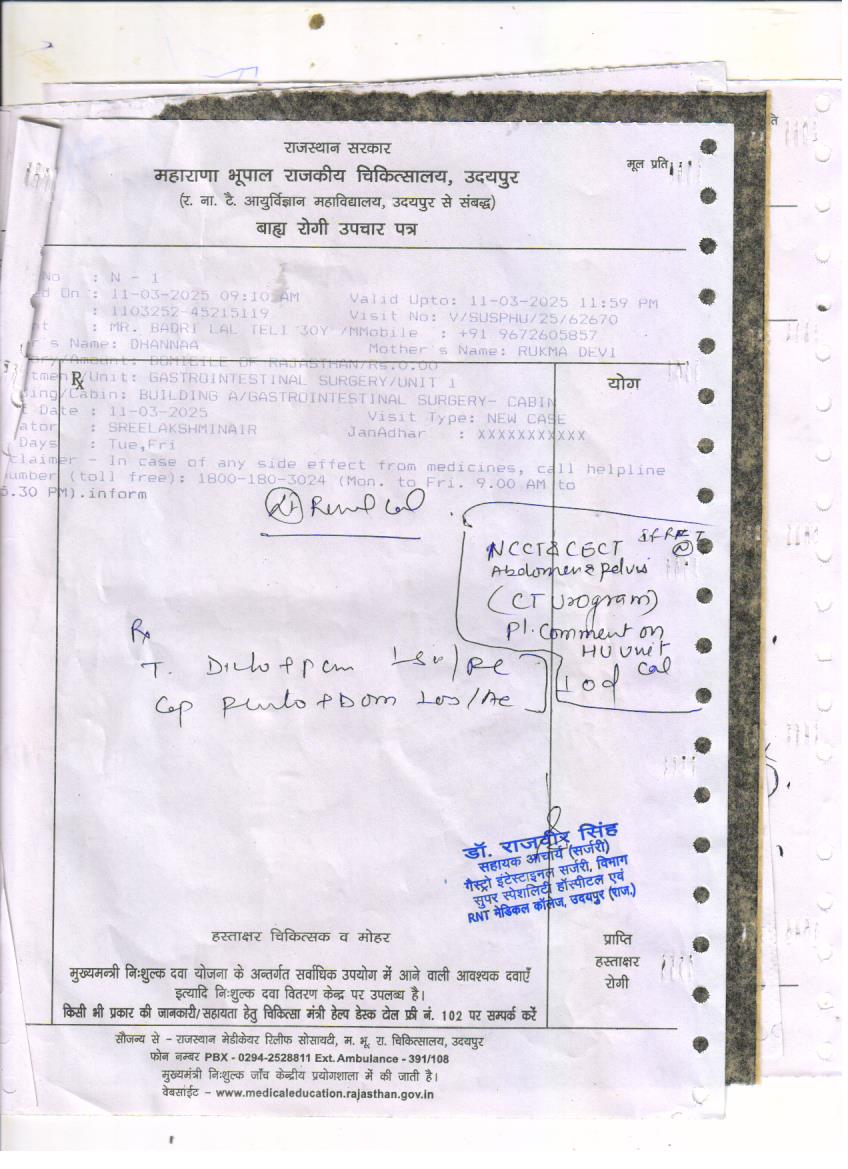 राजस्थान सरकार
महाराणा भूपाल राजकीय चिकित्सालय, उदयपुर
मूल प्रति
(र. ना. टै. आयुर्विज्ञान महाविद्यालय, उदयपुर से संबद्ध)
बाह्य रोगी उपचार पत्र
No : N - 1
On : 11-03-2025 09:10 AM Valid Upto: 11-03-2025 11:59 PM
: 1103252-45215119 Visit No: V/SUSPHU/25/62670
: MR. BADRI LAL TELI 30Y /MMobile : +91 9672605857
r's Name: DHANNAA Mother's Name: RUKMA DEVI
/Amount: DOMICILE OF RAJASTHAN/Rs.0.00
Rx
योग
/Unit: GASTROINTESTINAL SURGERY/UNIT 1
ing/Cabin: BUILDING A/GASTROINTESTINAL SURGERY- CABIN
Date : 11-03-2025 Visit Type: NEW CASE
ator : SREELAKSHMINAIR JanAdhar : XXXXXXXXXXX
Days : Tue,Fri
claimer - In case of any side effect from medicines, call helpline
umber (toll free): 1800-180-3024 (Mon. to Fri. 9.00 AM to
5.30 PM).inform
Renal Cal
NCCT & CECT
Abdomen & Pelvis
(CT Urogram)
Pl. Comment on
HU Unit
Cal
Rx
T. Diclo + pcm
Cap Panto + Dom
डॉ. राजवीर सिंह
सहायक आचार्य (सर्जरी)
गैस्ट्रो इंटेस्टाइनल सर्जरी, विभाग
सुपर स्पेशलिटी हॉस्पीटल एवं
RNT मेडिकल कॉलेज, उदयपुर (राज.)
हस्ताक्षर चिकित्सक व मोहर
प्राप्ति
हस्ताक्षर
रोगी
मुख्यमन्त्री निःशुल्क दवा योजना के अन्तर्गत सर्वाधिक उपयोग में आने वाली आवश्यक दवाएँ
इत्यादि निःशुल्क दवा वितरण केन्द्र पर उपलब्ध है।
किसी भी प्रकार की जानकारी/सहायता हेतु चिकित्सा मंत्री हेल्प डेस्क टोल फ्री नं. 102 पर सम्पर्क करें
सौजन्य से - राजस्थान मेडीकेयर रिलीफ सोसायटी, म. भू. रा. चिकित्सालय, उदयपुर
फोन नम्बर PBX - 0294-2528811 Ext. Ambulance - 391/108
मुख्यमंत्री निःशुल्क जाँच केन्द्रीय प्रयोगशाला में की जाती है।
वेबसांईट - www.medicaleducation.rajasthan.gov.in